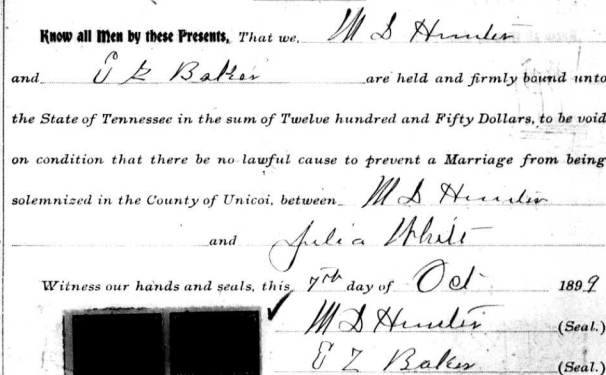 Know all Men by these Presents, That we, M D Hunter
and E Z Baker are held and firmly bound unto
the State of Tennessee in the sum of Twelve hundred and Fifty Dollars, to be void
on condition that there be no lawful cause to prevent a Marriage from being
solemnized in the County of Unicoi, between M D Hunter
and Julia White
Witness our hands and seals, this 7th day of Oct 1899
M D Hunter (Seal.)
E Z Baker (Seal.)